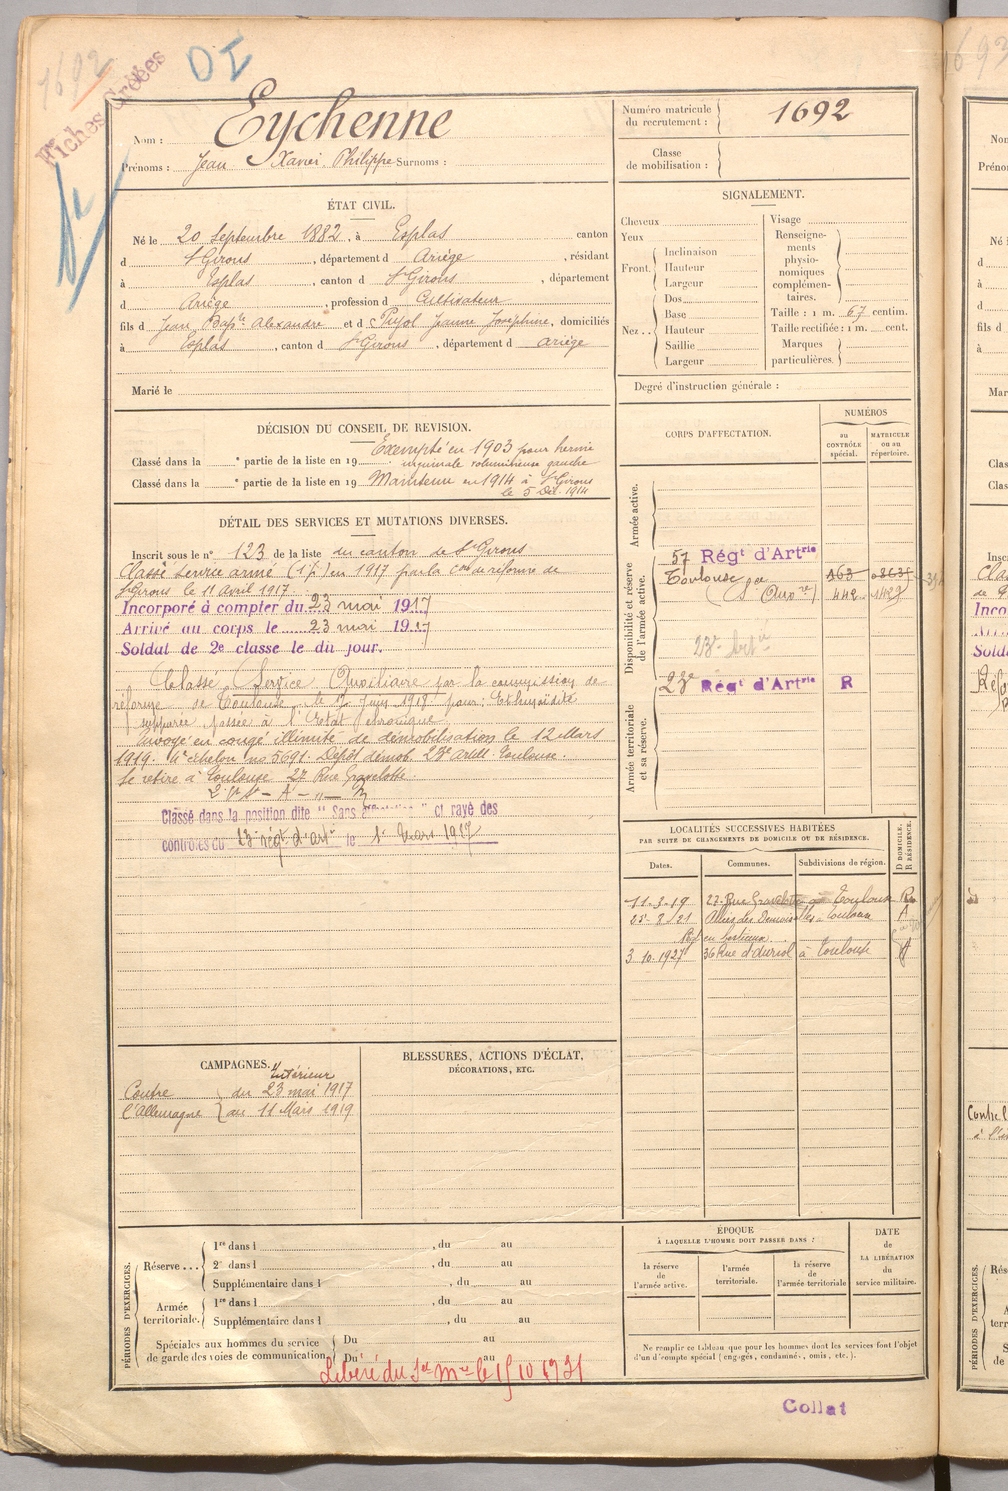 1692
Fiches Créées
DI
Nom : Eychenne
Prénoms : Jean Xavier Philippe Surnoms :
Numéro matricule du recrutement : 1692
Classe de mobilisation :
ÉTAT CIVIL.
Né le 20 Septembre 1882, à Esplas canton
d St Girons, département d Ariège, résidant
à Esplas, canton d St Girons, département
d Ariège, profession d Cultivateur
fils d Jean Bapte Alexandre et d Pujol Jeanne Joséphine, domiciliés
à Esplas, canton d St Girons, département d Ariège
Marié le
SIGNALEMENT.
Cheveux
Yeux
Front.
Inclinaison
Hauteur
Largeur
Nez..
Dos
Base
Hauteur
Saillie
Largeur
Visage
Renseignements physionomiques complémentaires.
Taille : 1 m. 67 centim.
Taille rectifiée : 1 m. cent.
Marques particulières.
Degré d'instruction générale :
DÉCISION DU CONSEIL DE REVISION.
Exempté en 1903 pour hernie
Classé dans la e partie de la liste en 19 . inguinale volumineuse gauche
Classé dans la e partie de la liste en 19 Maintenu en 1914 à St Girons
le 5 Déc. 1914
DÉTAIL DES SERVICES ET MUTATIONS DIVERSES.
Inscrit sous le n° 123 de la liste du canton de St Girons
Classé service armé en 1917 par la Con de réforme de
St Girons le 11 avril 1917.
Incorporé à compter du 23 mai 1917
Arrivé au corps le 23 mai 1917
Soldat de 2e classe le dit jour.
Classé Service Auxiliaire par la commission de
réforme de Toulouse, le Juin 1918 pour :
suppurée passée à l'Etat chronique
Envoyé en congé illimité de démobilisation le 12 Mars
1919. 4e échelon no 5691. Dépôt démob. 23e Artill. Toulouse.
Se retire à Toulouse 27 Rue Gravelotte
Classé dans la position dite " Sans affectation " et rayé des
contrôles du 23 régt d'arti le 1er mars 1927
CORPS D'AFFECTATION.
NUMÉROS
au CONTRÔLE spécial.
MATRICULE ou au répertoire.
Armée active.
Disponibilité et réserve de l'armée active.
57 Régt d'Artrie
Toulouse
(Sce Auxre)
163
442
1429
23e
23e Régt d'Artrie R
Armée territoriale et sa réserve.
LOCALITÉS SUCCESSIVES HABITÉES
PAR SUITE DE CHANGEMENTS DE DOMICILE OU DE RÉSIDENCE.
D DOMICILE. R RÉSIDENCE.
Dates. Communes. Subdivisions de région.
11-3-19 27 Rue Gravelotte Toulouse R
25-8-21 Allées des Demoiselles à Toulouse
3.10.1927 36 Rue à Toulouse
CAMPAGNES.
Intérieur
Contre du 23 mai 1917
l'Allemagne au 11 Mars 1919
BLESSURES, ACTIONS D'ÉCLAT,
DÉCORATIONS, ETC.
PÉRIODES D'EXERCICES.
Réserve ...
1re dans l , du au
2e dans l , du au
Supplémentaire dans l , du au
Armée territoriale.
1re dans l , du au
Supplémentaire dans l , du au
Spéciales aux hommes du service de garde des voies de communication.
Du au
Du au
Libéré du Sce Mre le 15 10 1931
ÉPOQUE
À LAQUELLE L'HOMME DOIT PASSER DANS :
la réserve de l'armée active.
l'armée territoriale.
la réserve de l'armée territoriale
DATE de LA LIBÉRATION du service militaire.
Ne remplir ce tableau que pour les hommes dont les services font l'objet
d'un décompte spécial (engagés, condamnés, omis, etc.).
Collat